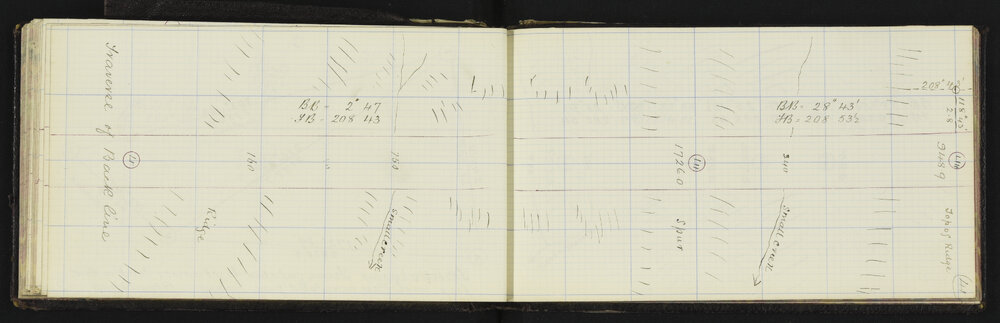 Traverse of Back line
Ridge
160
BB - 2° 47
FB - 208 43
760
Small creek
17260
Spur
BB - 28° 43'
FB - 208 53½
340
Small creek
208° 43'
118° 43'
28
Top of Ridge